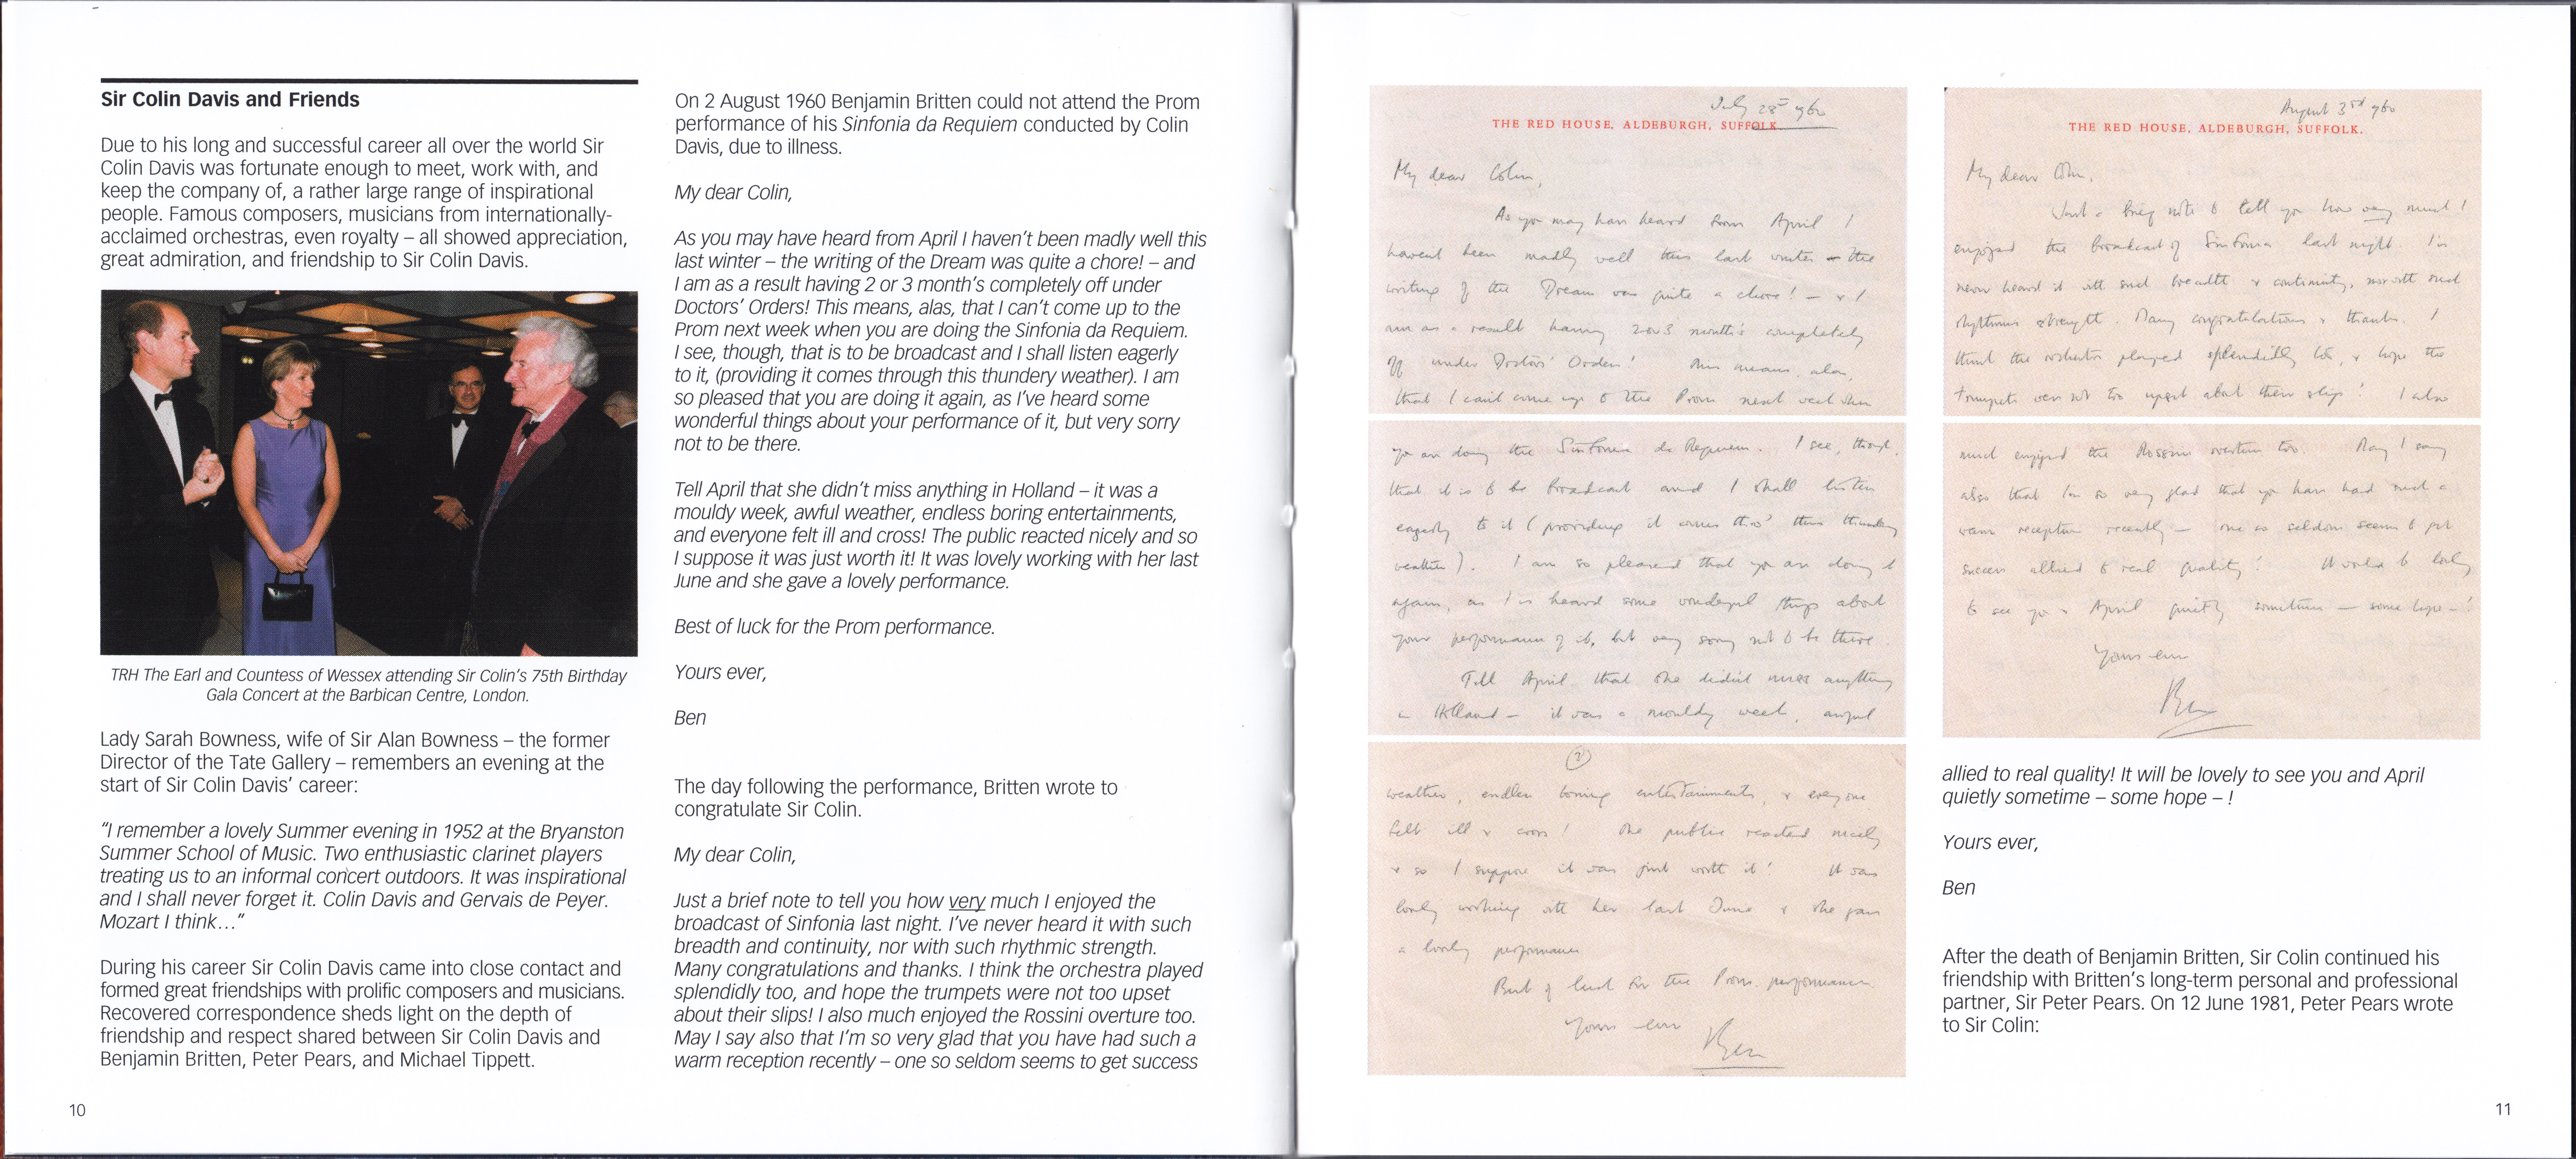 Sir Colin Davis and Friends
Due to his long and successful career all over the world Sir
Colin Davis was fortunate enough to meet, work with, and
keep the company of, a rather large range of inspirational
people. Famous composers, musicians from internationally-
acclaimed orchestras, even royalty – all showed appreciation,
great admiration, and friendship to Sir Colin Davis.
TRH The Earl and Countess of Wessex attending Sir Colin's 75th Birthday
Gala Concert at the Barbican Centre, London.
Lady Sarah Bowness, wife of Sir Alan Bowness – the former
Director of the Tate Gallery – remembers an evening at the
start of Sir Colin Davis' career:
"I remember a lovely Summer evening in 1952 at the Bryanston
Summer School of Music. Two enthusiastic clarinet players
treating us to an informal concert outdoors. It was inspirational
and I shall never forget it. Colin Davis and Gervais de Peyer.
Mozart I think…"
During his career Sir Colin Davis came into close contact and
formed great friendships with prolific composers and musicians.
Recovered correspondence sheds light on the depth of
friendship and respect shared between Sir Colin Davis and
Benjamin Britten, Peter Pears, and Michael Tippett.
10
On 2 August 1960 Benjamin Britten could not attend the Prom
performance of his Sinfonia da Requiem conducted by Colin
Davis, due to illness.
My dear Colin,
As you may have heard from April I haven't been madly well this
last winter – the writing of the Dream was quite a chore! – and
I am as a result having 2 or 3 month's completely off under
Doctors' Orders! This means, alas, that I can't come up to the
Prom next week when you are doing the Sinfonia da Requiem.
I see, though, that is to be broadcast and I shall listen eagerly
to it, (providing it comes through this thundery weather). I am
so pleased that you are doing it again, as I've heard some
wonderful things about your performance of it, but very sorry
not to be there.
Tell April that she didn't miss anything in Holland – it was a
mouldy week, awful weather, endless boring entertainments,
and everyone felt ill and cross! The public reacted nicely and so
I suppose it was just worth it! It was lovely working with her last
June and she gave a lovely performance.
Best of luck for the Prom performance.
Yours ever,
Ben
The day following the performance, Britten wrote to
congratulate Sir Colin.
My dear Colin,
Just a brief note to tell you how very much I enjoyed the
broadcast of Sinfonia last night. I've never heard it with such
breadth and continuity, nor with such rhythmic strength.
Many congratulations and thanks. I think the orchestra played
splendidly too, and hope the trumpets were not too upset
about their slips! I also much enjoyed the Rossini overture too.
May I say also that I'm so very glad that you have had such a
warm reception recently – one so seldom seems to get success
July 28th 1960
THE RED HOUSE, ALDEBURGH, SUFFOLK.
My dear Colin,
As you may have heard from April I
haven't been madly well this last winter – the
writing of the Dream was quite a chore! – & I
am as a result having 2 or 3 month's completely
off under Doctors' Orders! This means, alas,
that I can't come up to the Prom next week when
you are doing the Sinfonia da Requiem. I see, though,
that it is to be broadcast and I shall listen
eagerly to it (providing it comes thro' this thundery
weather). I am so pleased that you are doing it
again, as I've heard some wonderful things about
your performance of it, but very sorry not to be there.
Tell April that she didn't miss anything
in Holland – it was a mouldy week, awful
2
weather, endless boring entertainments, & everyone
felt ill & cross! The public reacted nicely
& so I suppose it was just worth it! It was
lovely working with her last June & she gave
a lovely performance
Best of luck for the Prom performance
Yours ever
Ben
August 3rd 1960
THE RED HOUSE, ALDEBURGH, SUFFOLK.
My dear Colin,
Just a brief note to tell you how very much I
enjoyed the broadcast of Sinfonia last night. I've
never heard it with such breadth & continuity, nor with such
rhythmic strength. Many congratulations & thanks. I
think the orchestra played splendidly too, & hope the
trumpets were not too upset about their slips! I also
much enjoyed the Rossini overture too. May I say
also that I'm so very glad that you have had such a
warm reception recently – one so seldom seems to get
success allied to real quality! It would be lovely
to see you & April quietly sometime – some hope –!
Yours ever
Ben
allied to real quality! It will be lovely to see you and April
quietly sometime – some hope – !
Yours ever,
Ben
After the death of Benjamin Britten, Sir Colin continued his
friendship with Britten's long-term personal and professional
partner, Sir Peter Pears. On 12 June 1981, Peter Pears wrote
to Sir Colin:
11